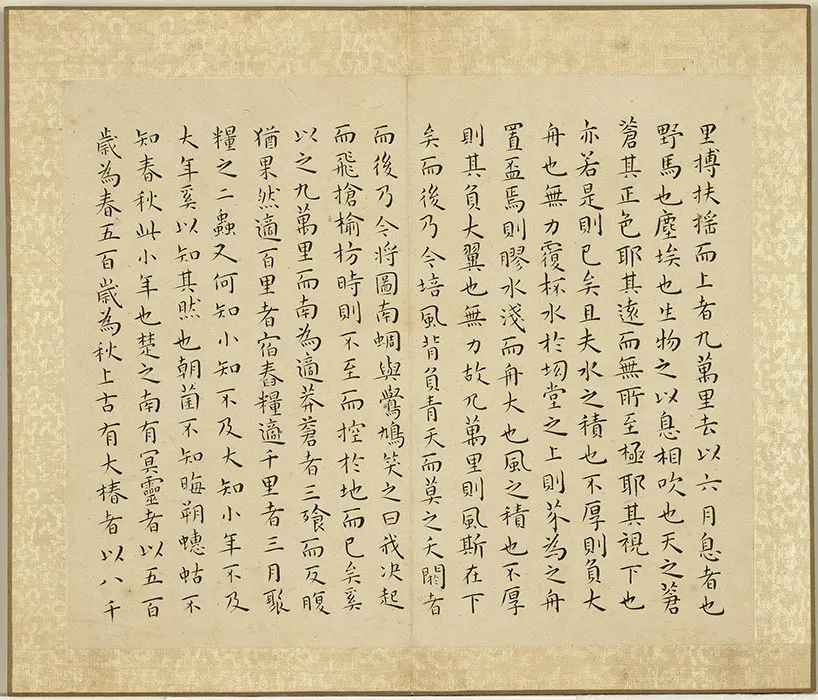 里搏扶搖而上者九萬里去以六月息者也
野馬也塵埃也生物之以息相吹也天之蒼
蒼其正色耶其遠而無所至極耶其視下也
亦若是則已矣且夫水之積也不厚則負大
舟也無力覆杯水於坳堂之上則芥為之舟
置盃焉則膠水淺而舟大也風之積也不厚
則其負大翼也無力故九萬里則風斯在下
矣而後乃今培風背負青天而莫之夭閼者
而後乃今將圖南蜩與鷽鳩笑之曰我决起
而飛搶榆枋時則不至而控於地而已矣奚
以之九萬里而南為適莽蒼者三飱而反腹
猶果然適百里者宿舂糧適千里者三月聚
糧之二蟲又何知小知不及大知小年不及
大年奚以知其然也朝菌不知晦朔蟪蛄不
知春秋此小年也楚之南有冥靈者以五百
歲為春五百歲為秋上古有大椿者以八千